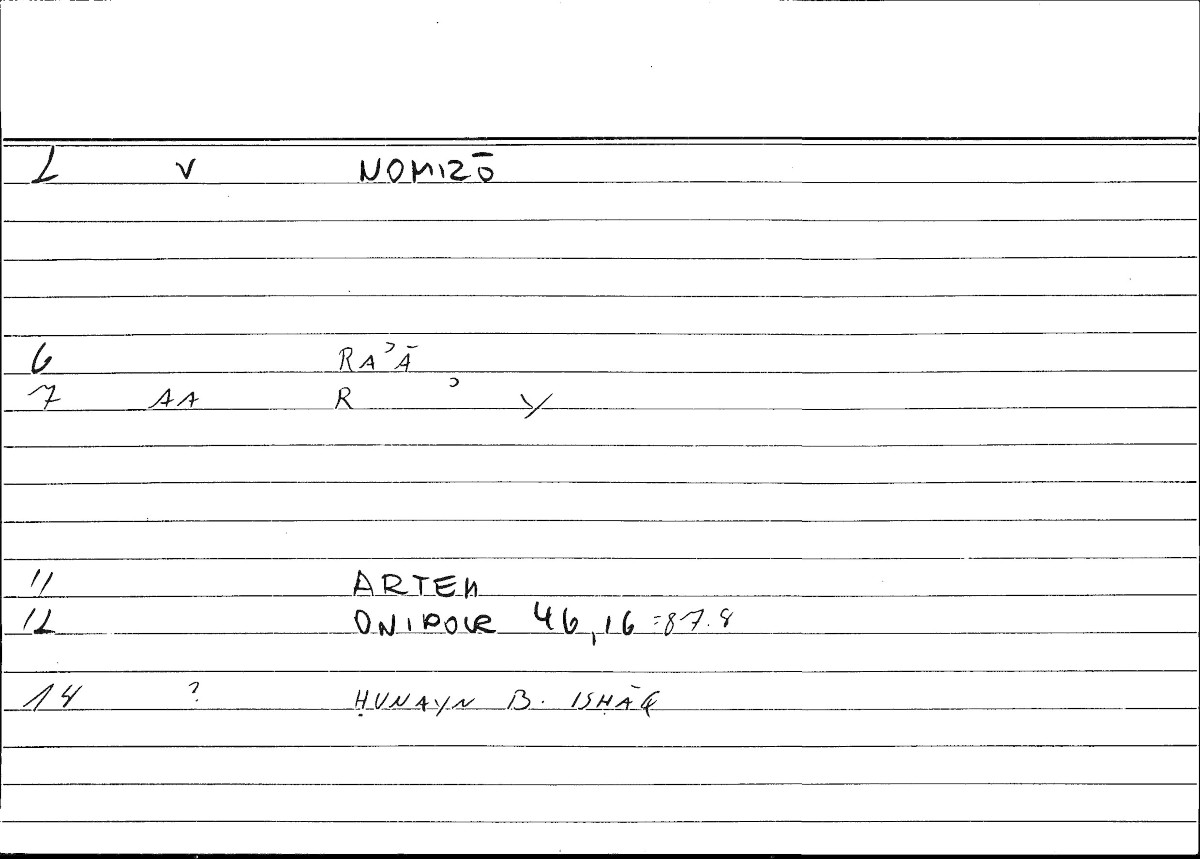 2 V NOMIZŌ
6 RAʾĀ
7 AA R ʾ Y
11 ARTEM
12 ONIROCR 46,16 =87.8
14 ? ḤUNAYN B. ISḤĀQ